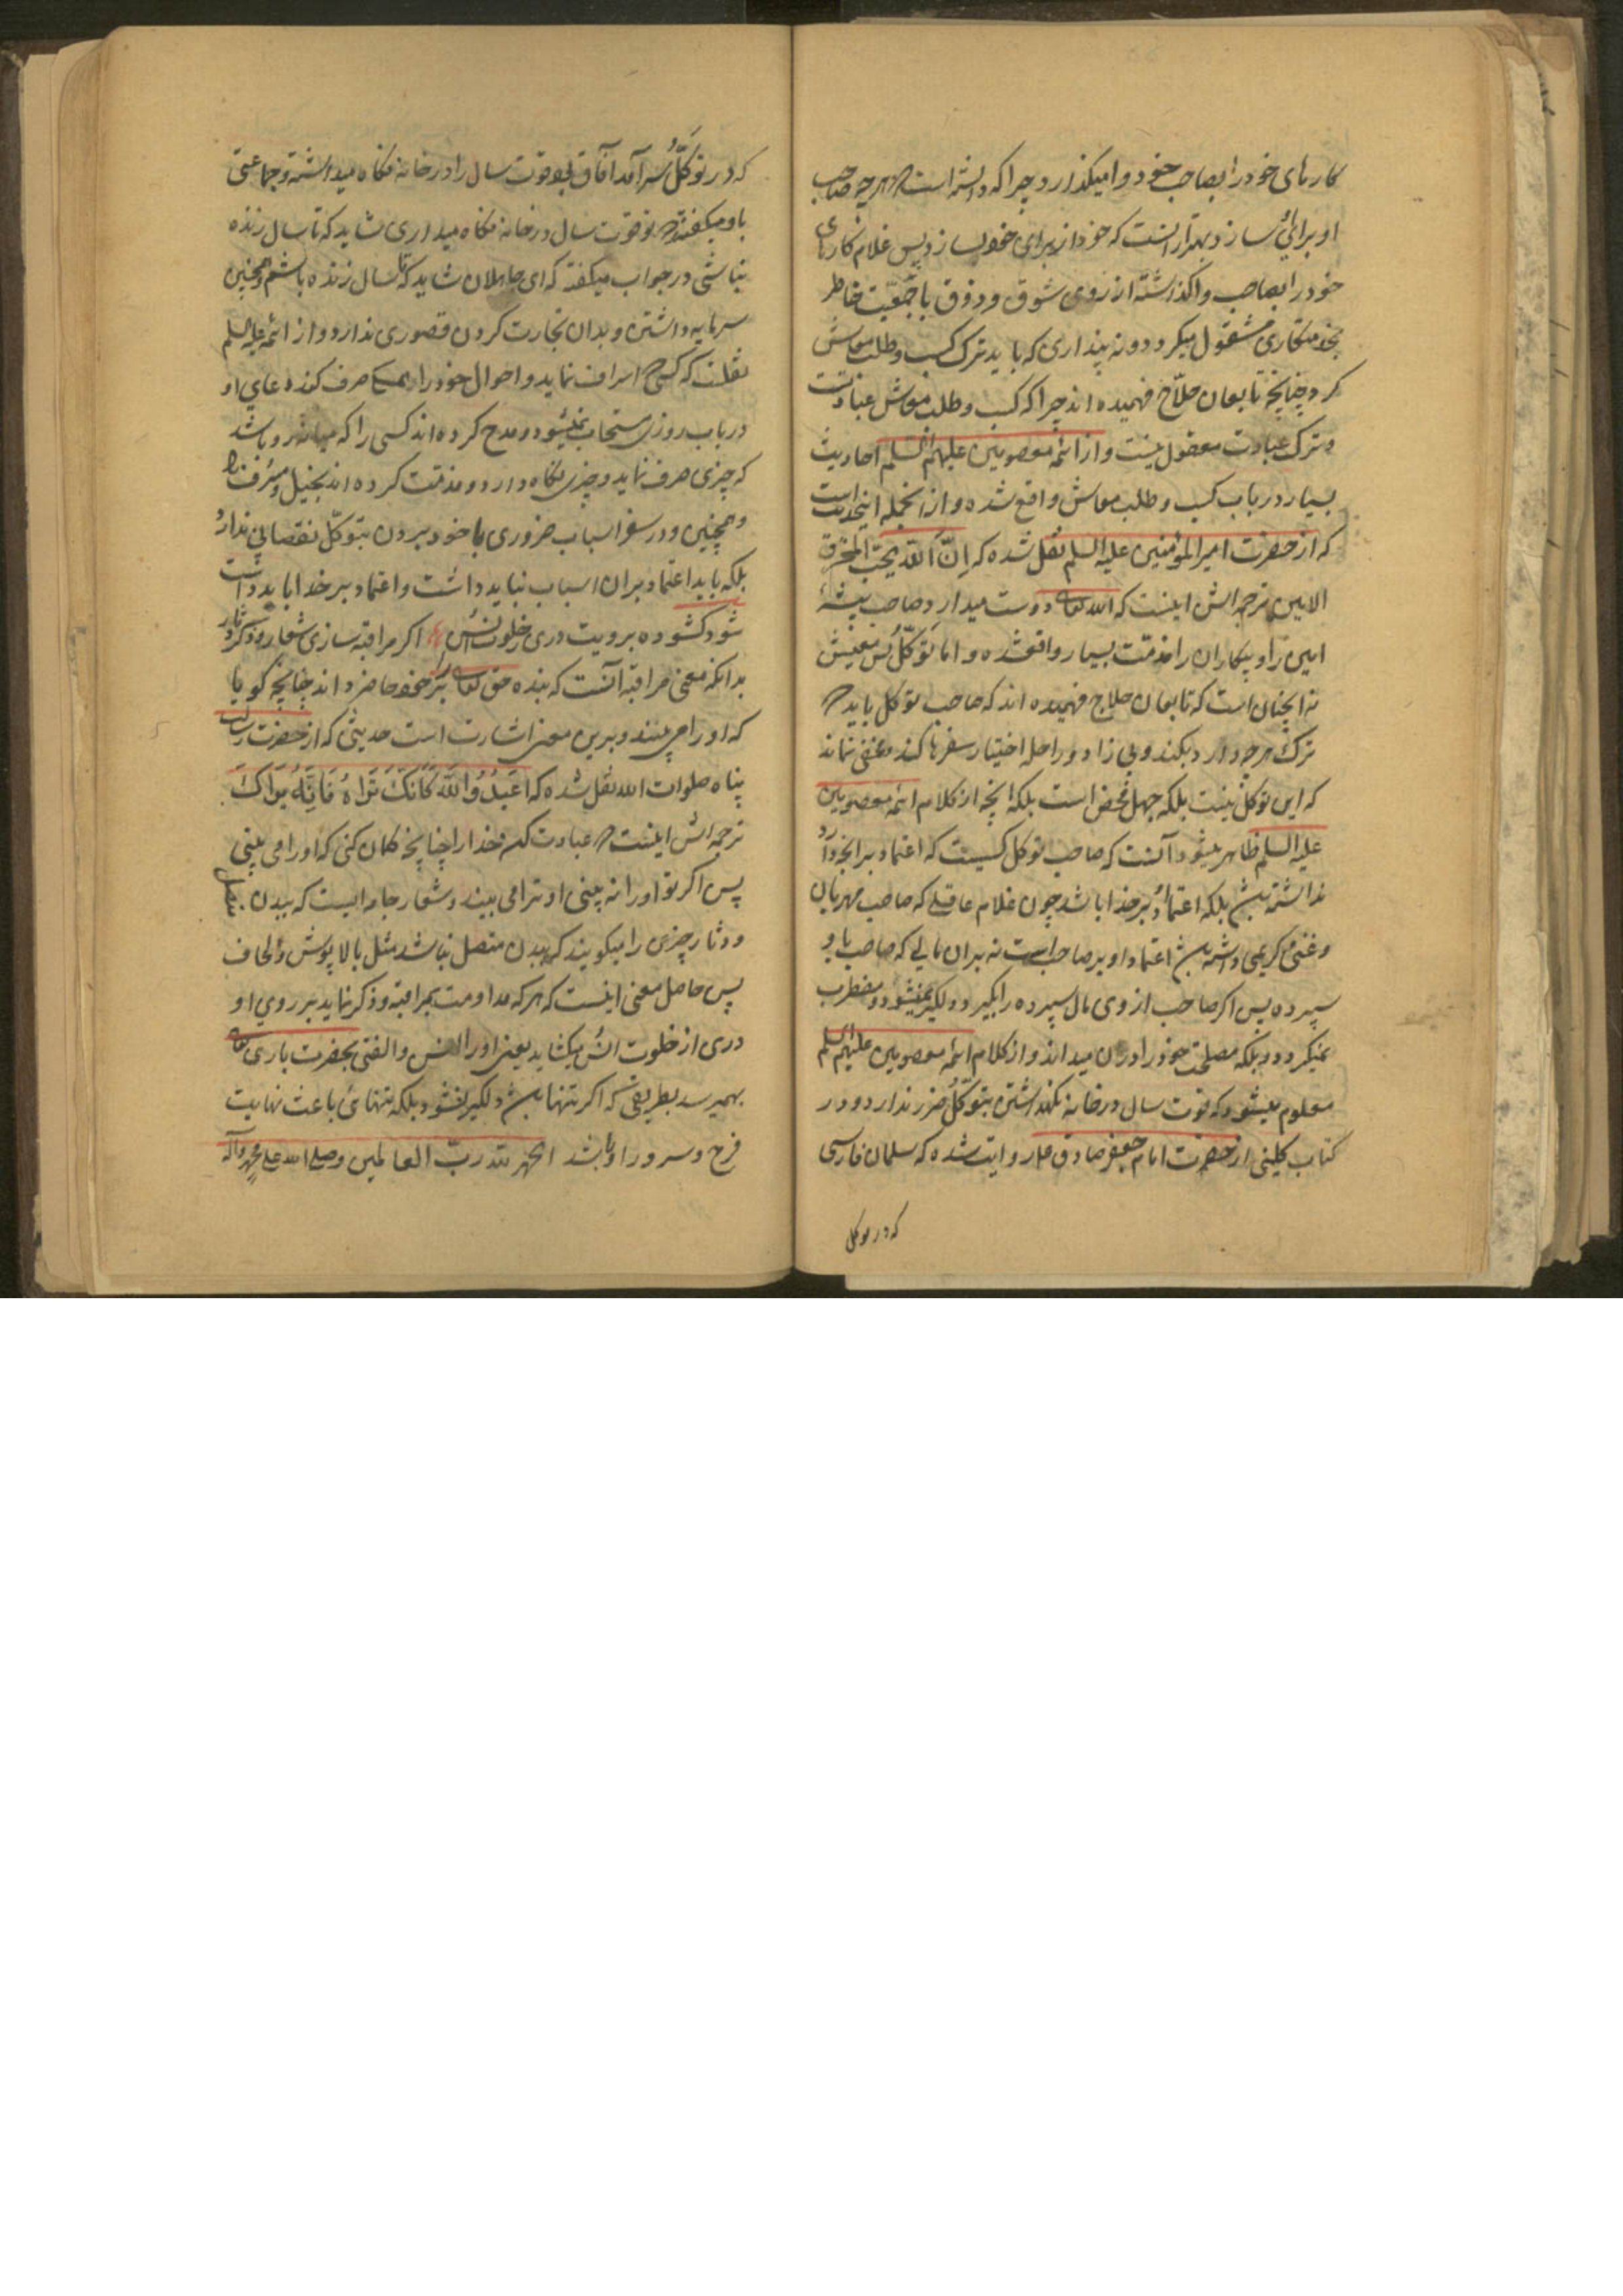 کارهای خود را بصاحب خود وا میکذارد چرا که دانسته است که هر چه صاحب
او برای او سازد بهتر از انست که خود از برای خود سازد پس غلام کارهای
خود را بصاحب واکذاشته از روی شوق و ذوق با جمعیت خاطر
بخدمتکاری مشغول میکردد و نه پنداری که باید ترک کسب و طلب معاش
کرد چنانچه تابعان حلاج فهمیده اند چرا که کسب و طلب معاش عبادتست
و ترک عبادت معقول نیست و از ائمه معصومین علیهم السلم احادیث
بسیار در باب کسب و طلب معاش واقع شده و از انجمله اینحدیث است
که از حضرت امیر المؤمنین علیه السلم نقل شده که اِنَّ اللّٰه یحبّ المحترف
الامین ترجمه اش اینست که الله تعالی دوست میدارد صاحب پیشهٔ
امین را و بیکاران را مذمت بسیار واقعشده و اما توکّل پس معنیش
نه انچنان است که تابعان حلاج فهمیده اند که صاحب توکل باید که
ترک هر چه دارد بکند و بی زاد و راحله اختیار سفرها کند و مخفی نماند
که این توکل نیست بلکه جهل محض است بلکه انچه از کلام ائمه معصومین
علیه السلم ظاهر میشود آنست که صاحب توکل کسیست که اعتماد بر انچه دارد
نداشته باشد بلکه اعتماد بر خدا باشد چون غلام عاقلی که صاحب مهربان
و غنی و کریمی داشته باشد اعتماد او بر صاحب است نه بران مالی که صاحب باو
سپرده پس اکر صاحب از وی مال سپرده را بکیرد دلکیر نمیشود و مضطرب
نمیکردد بلکه مصلحت خود را دران میداند و از کلام ائمه معصومین علیهم السلم
معلوم میشود که قوت سال در خانه نکهداشتن بتوکّل ضرر ندارد و در
کتاب کلینی از حضرت امام جعفر صادق ع روایت شده که سلمان فارسی
که در توکل
که در توکّل سر آمد آفاق بود قوت سال را در خانه نکاه میداشته و جماعتی
باو میکفتند که تو قوت سال در خانه نکاه میداری شاید که تا سال زنده
نباشی در جواب میکفته که ای جاهلان شاید که تا سال زنده باشم و همچنین
سرمایه داشتن و بدان تجارت کردن قصوری ندارد و از ائمه علیه السلم
نقلست که کسی که اسراف نماید و احوال خود را همه صرف کند دعای او
در باب روزی مستجاب نمیشود و مدح کرده اند کسی را که میانه رو باشد
که چیزی صرف نماید و چیزی نکاه دارد و مذمت کرده اند بخیل و مسرف را
و همچنین در سفر اسباب ضروری با خود بردن بتوکّل نقصانی ندارد
بلکه باید اعتماد بران اسباب نباید داشت و اعتماد بر خدا باید داشت
شود کشوده برویت دری ز خلوت انس اکر مراقبه سازی شعار و ذکر دثار
بدانکه معنی مراقبه آنست که بنده حق تعالی را بر خود حاضر داند چنانچه کویا
که او را می بیند و برین معنی اشارت است حدیثی که از حضرت رسالت
پناه صلوات الله نقل شده که اعبدُوا اللّٰه کَاَنَّکَ تَرَاهُ فَاِنَّهُ یَرَاکَ
ترجمه اش اینست که عبادت کن خدا را چنانچه کمان کنی که او را می بینی
پس اکر تو او را نه بینی او ترا می بیند و شعار جامه ایست که ببدن متصل
و دثار چیزی را میکویند که ببدن متصل نباشد مثل بالاپوش و لحاف
پس حاصل معنی اینست که هر که مداومت بمراقبه و ذکر نماید بر روی او
دری از خلوت انس بکشاید یعنی او را انس و الفتی بحضرت باری تعالی
بهمیرسد بطریقی که اکر تنها باشد دلکیر نشود بلکه تنهائی باعث نهایت
فرح و سرور او باشد الحمد لله ربّ العالمین و صلی الله علی محمد و آله